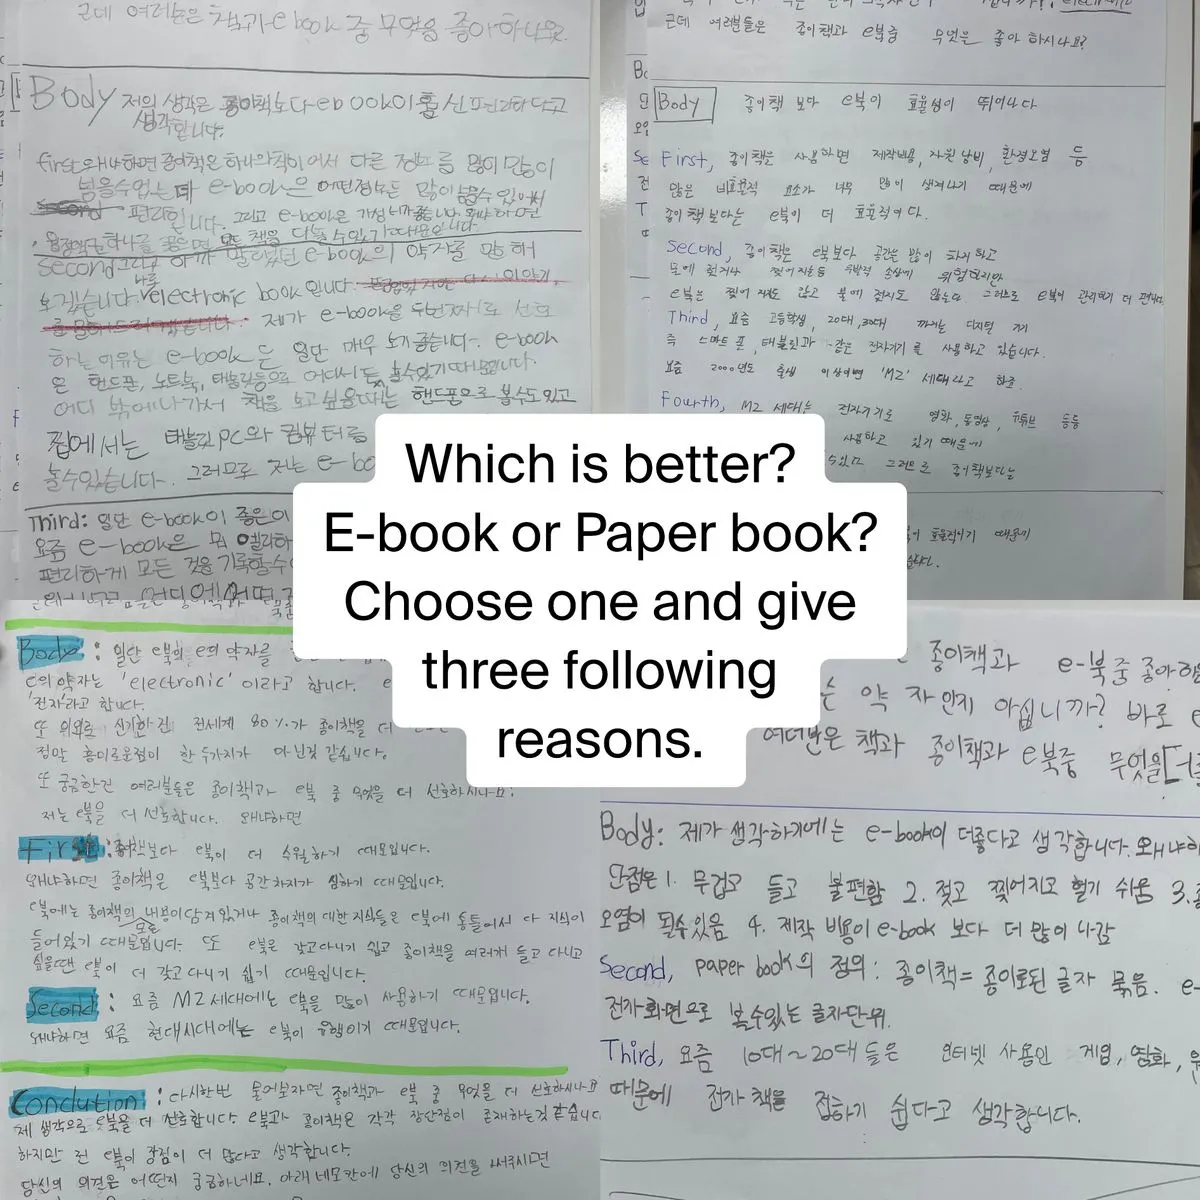 근데 여러분은 책과 e-book 중 무엇을 좋아하나요?
Body 저의 생각은 종이책보다 ebook이 훨신 편리하다고
생각합니다.
first 왜냐하면 종이책은 하나의 책이어서 다른 정보를 많이 많이
넣을수없는데 e-book은 어떤정보든 많이 넣을수 있어서
편리합니다. 그리고 e-book은 가성비가 좋습니다. 왜냐하면
하나를 모든 책을 다볼수있기 때문입니다.
Second 그리고 아까 말리셨던 e-book의 약자를 말해
보겠습니다. 바로 electronic book 입니다.
제가 e-book을 두번째로 선호
하는 이유는 e-book은 일단 매우 보기 좋습니다. e-book
은 핸드폰, 노트북, 태블릿등으로 어디서든 볼수있기 때문입니다.
어디 밖에나가서 책을 보고싶을때는 핸드폰으로 볼수도있고
집에서는 태블릿PC와 컴퓨터를
볼수있습니다. 그러므로 저는 e-bo
Third: 일단 e-book이 좋은이
요즘 e-book은 뭐
편리하게 모든 것을 기록할수
근데 여러분들은 종이책과 e북중 무엇은 좋아 하시나요?
Body 종이책 보다 e북이 효율성이 뛰어나다
First, 종이책은 사용하면 제작비용, 자원낭비, 환경오염 등
많은 비효율적 요소가 너무 많이 생겨나기 때문에
종이책보다는 e북이 더 효율적이다.
Second, 종이책은 e북보다 공간은 많이 차지하고
물에 젖거나 찢어지는등 위험하지만
e북은 찢어지지도 않고 물에 젖지도 않는다 그러므로 e북이 관리하기 더 편하다
Third, 요즘 고등학생, 20대, 30대 까지는 디지털 기기
즉 스마트폰, 태블릿과 같은 전자기기를 사용하고 있습니다.
요즘 2000년도 출생 이상이면 'MZ' 세대라고 하죠.
Fourth, MZ 세대는 전자기기로 영화, 동영상, 유튜브 등등
사용하고 있기 때문에
수있으며 그러므로 종이책보다는
효율적이기 때문에
Which is better?
E-book or Paper book?
Choose one and give
three following
reasons.
Body : 일단 e북의 e의 약자를
e의 약자는 'electronic' 이라고 합니다.
'전자'라고 합니다.
또 의외로 신기한건 전세계 80%가 종이책을 더
정말 흥미로운점이 한두가지가 아닌것 같습니다.
또 궁금한건 여러분들은 종이책과 e북 중 무엇을 더 선호하시나요?
저는 e북을 더 선호합니다. 왜냐하면
First : 종이책보다 e북이 더 수월하기 때문입니다.
왜냐하면 종이책은 e북보다 공간차지가 심하기 때문입니다.
e북에는 종이책의 모든 내용이담겨있거나 종이책의 대한 지식들은 e북에 통틀어서 다 지식이
들어있기 때문입니다. 또 e북은 갖고다니기 쉽고 종이책을 여러개 들고 다니고
싶을땐 e북이 더 갖고 다니기 쉽기 때문입니다.
Second : 요즘 MZ세대에는 e북을 많이 사용하기 때문입니다.
왜냐하면 요즘 현대시대에는 e북이 유행이기 때문입니다.
Conclution : 다시한번 물어보자면 종이책과 e북 중 무엇을 더 선호하시나요
제 생각으로 e북을 더 선호합니다. e북과 종이책은 각각 장단점이 존재하는것 같습니다
하지만 전 e북이 장점이 더 많다고 생각합니다.
당신의 의견은 어떤지 궁금하네요. 아래 네모칸에 당신의 의견을 써주시면
종이책과 e-북중 좋아하
는 약자인지 아십니까? 바로 e
여러분은 책과 종이책과 e북중 무엇을
Body: 제가 생각하기에는 e-book이 더좋다고 생각합니다. 왜냐하
단점은 1. 무겁고 들고 불편함 2. 젖고 찢어지고 헐기 쉬움 3.
오염이 될수있음 4. 제작 비용이 e-book 보다 더 많이 나감
Second, paper book의 정의 : 종이책 = 종이로된 글자 묶음. e-
전자화면으로 볼수있는 글자단위.
Third, 요즘 10대~20대 들은 인터넷 사용인 게임, 영화, 유
때문에 전자 책을 접하기 쉽다고 생각합니다.